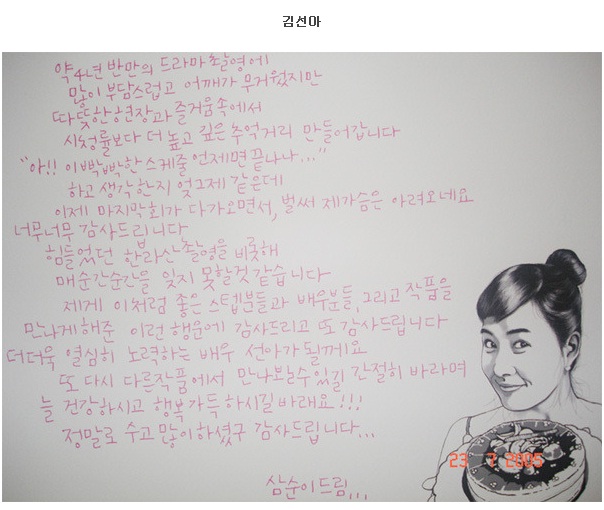 김선아
약 4년 반만의 드라마 촬영에
많이 부담스럽고 어깨가 무거웠지만
따뜻한 현장과 즐거움속에서
시청률보다 더 높고 깊은 추억거리 만들어갑니다
"아!! 이 빡빡한 스케줄 언제면 끝나나..."
하고 생각한지 엊그제 같은데
이제 마지막회가 다가오면서, 벌써 제가슴은 아려오네요
너무너무 감사드립니다
힘들었던 한라산 촬영을 비롯해
매순간순간을 잊지 못할것 같습니다
제게 이처럼 좋은 스텝분들과 배우분들, 그리고 작품을
만나게해준 이런 행운에 감사드리고 또 감사드립니다
더더욱 열심히 노력하는 배우 선아가 될께요
또 다시 다른작품에서 만나보날수있길 간절히 바라며
늘 건강하시고 행복가득하시길 바래요!!!
정말로 수고 많이하셨구 감사드립니다...
삼순이드림...
23 7 2005